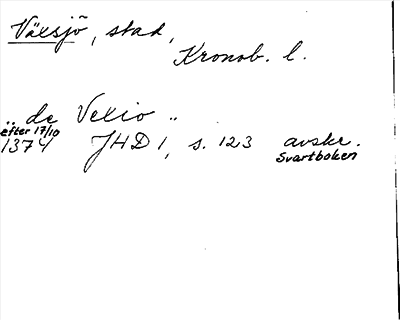 Växsjö, stad,
Kronob. l.
.. de Vexio ..
efter 17/10
1374 JHD 1, s. 123 avskr.
Svartboken